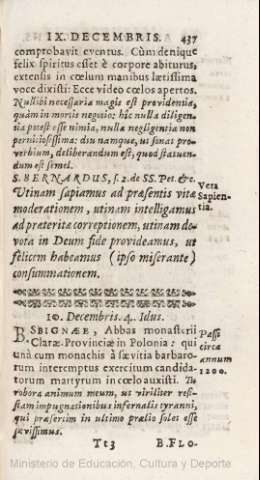 IX. DECEMBRIS. 437
comprobavit eventus. Cùm denique
felix spiritus esset è corpore abiturus,
extensis in cœlum manibus lætissima
voce dixisti: Ecce video cœlos apertos.
Nullibi necessaria magis est providentia,
quàm in mortis negotio: hîc nulla diligen-
tia potest esse nimia, nulla negligentia non
perniciosissima: diu namque, ut sonat pro-
verbium, deliberandum est, quod statuen-
dum est semel.
S. BERNARDUS, s. 2. de SS. Pet. & c.
Utinam sapiamus ad præsentis vitæ
moderationem, utinam intelligamus
ad præterita correptionem, utinam de-
vota in Deum fide provideamus, ut
felicem habeamus (ipso miserante)
consummationem.
Vera
Sapien-
tia.
10. Decembris. 4. Idus.
BSBIGNÆE, Abbas monasterii
Claræ-Provinciæ in Polonia: qui
unà cum monachis à sævitia barbaro-
rum interemptus exercitum candida-
torum martyrum in cœlo auxisti. Tu
robora animum meum, ut viriliter resi-
stam impugnationibus infernalis tyranni,
qui præsertim in ultimo prælio solet esse
sævissimus.
Passi
circa
annum
1200.
Tt3 B. FLO-
Ministerio de Educación, Cultura y Deporte